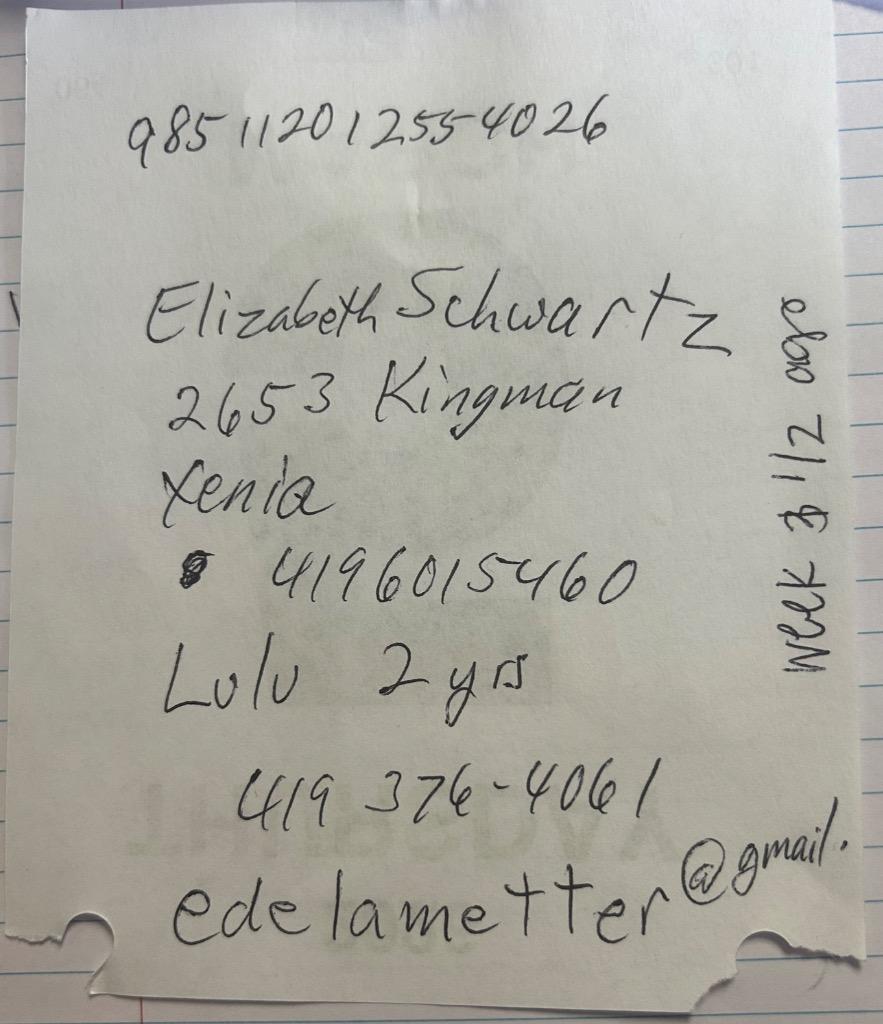 985112012554026
Elizabeth Schwartz
2653 Kingman
Xenia
4196015460
Lulu 2 yrs
419 376-4061
edelametter@gmail.
week 3 1/2 ago